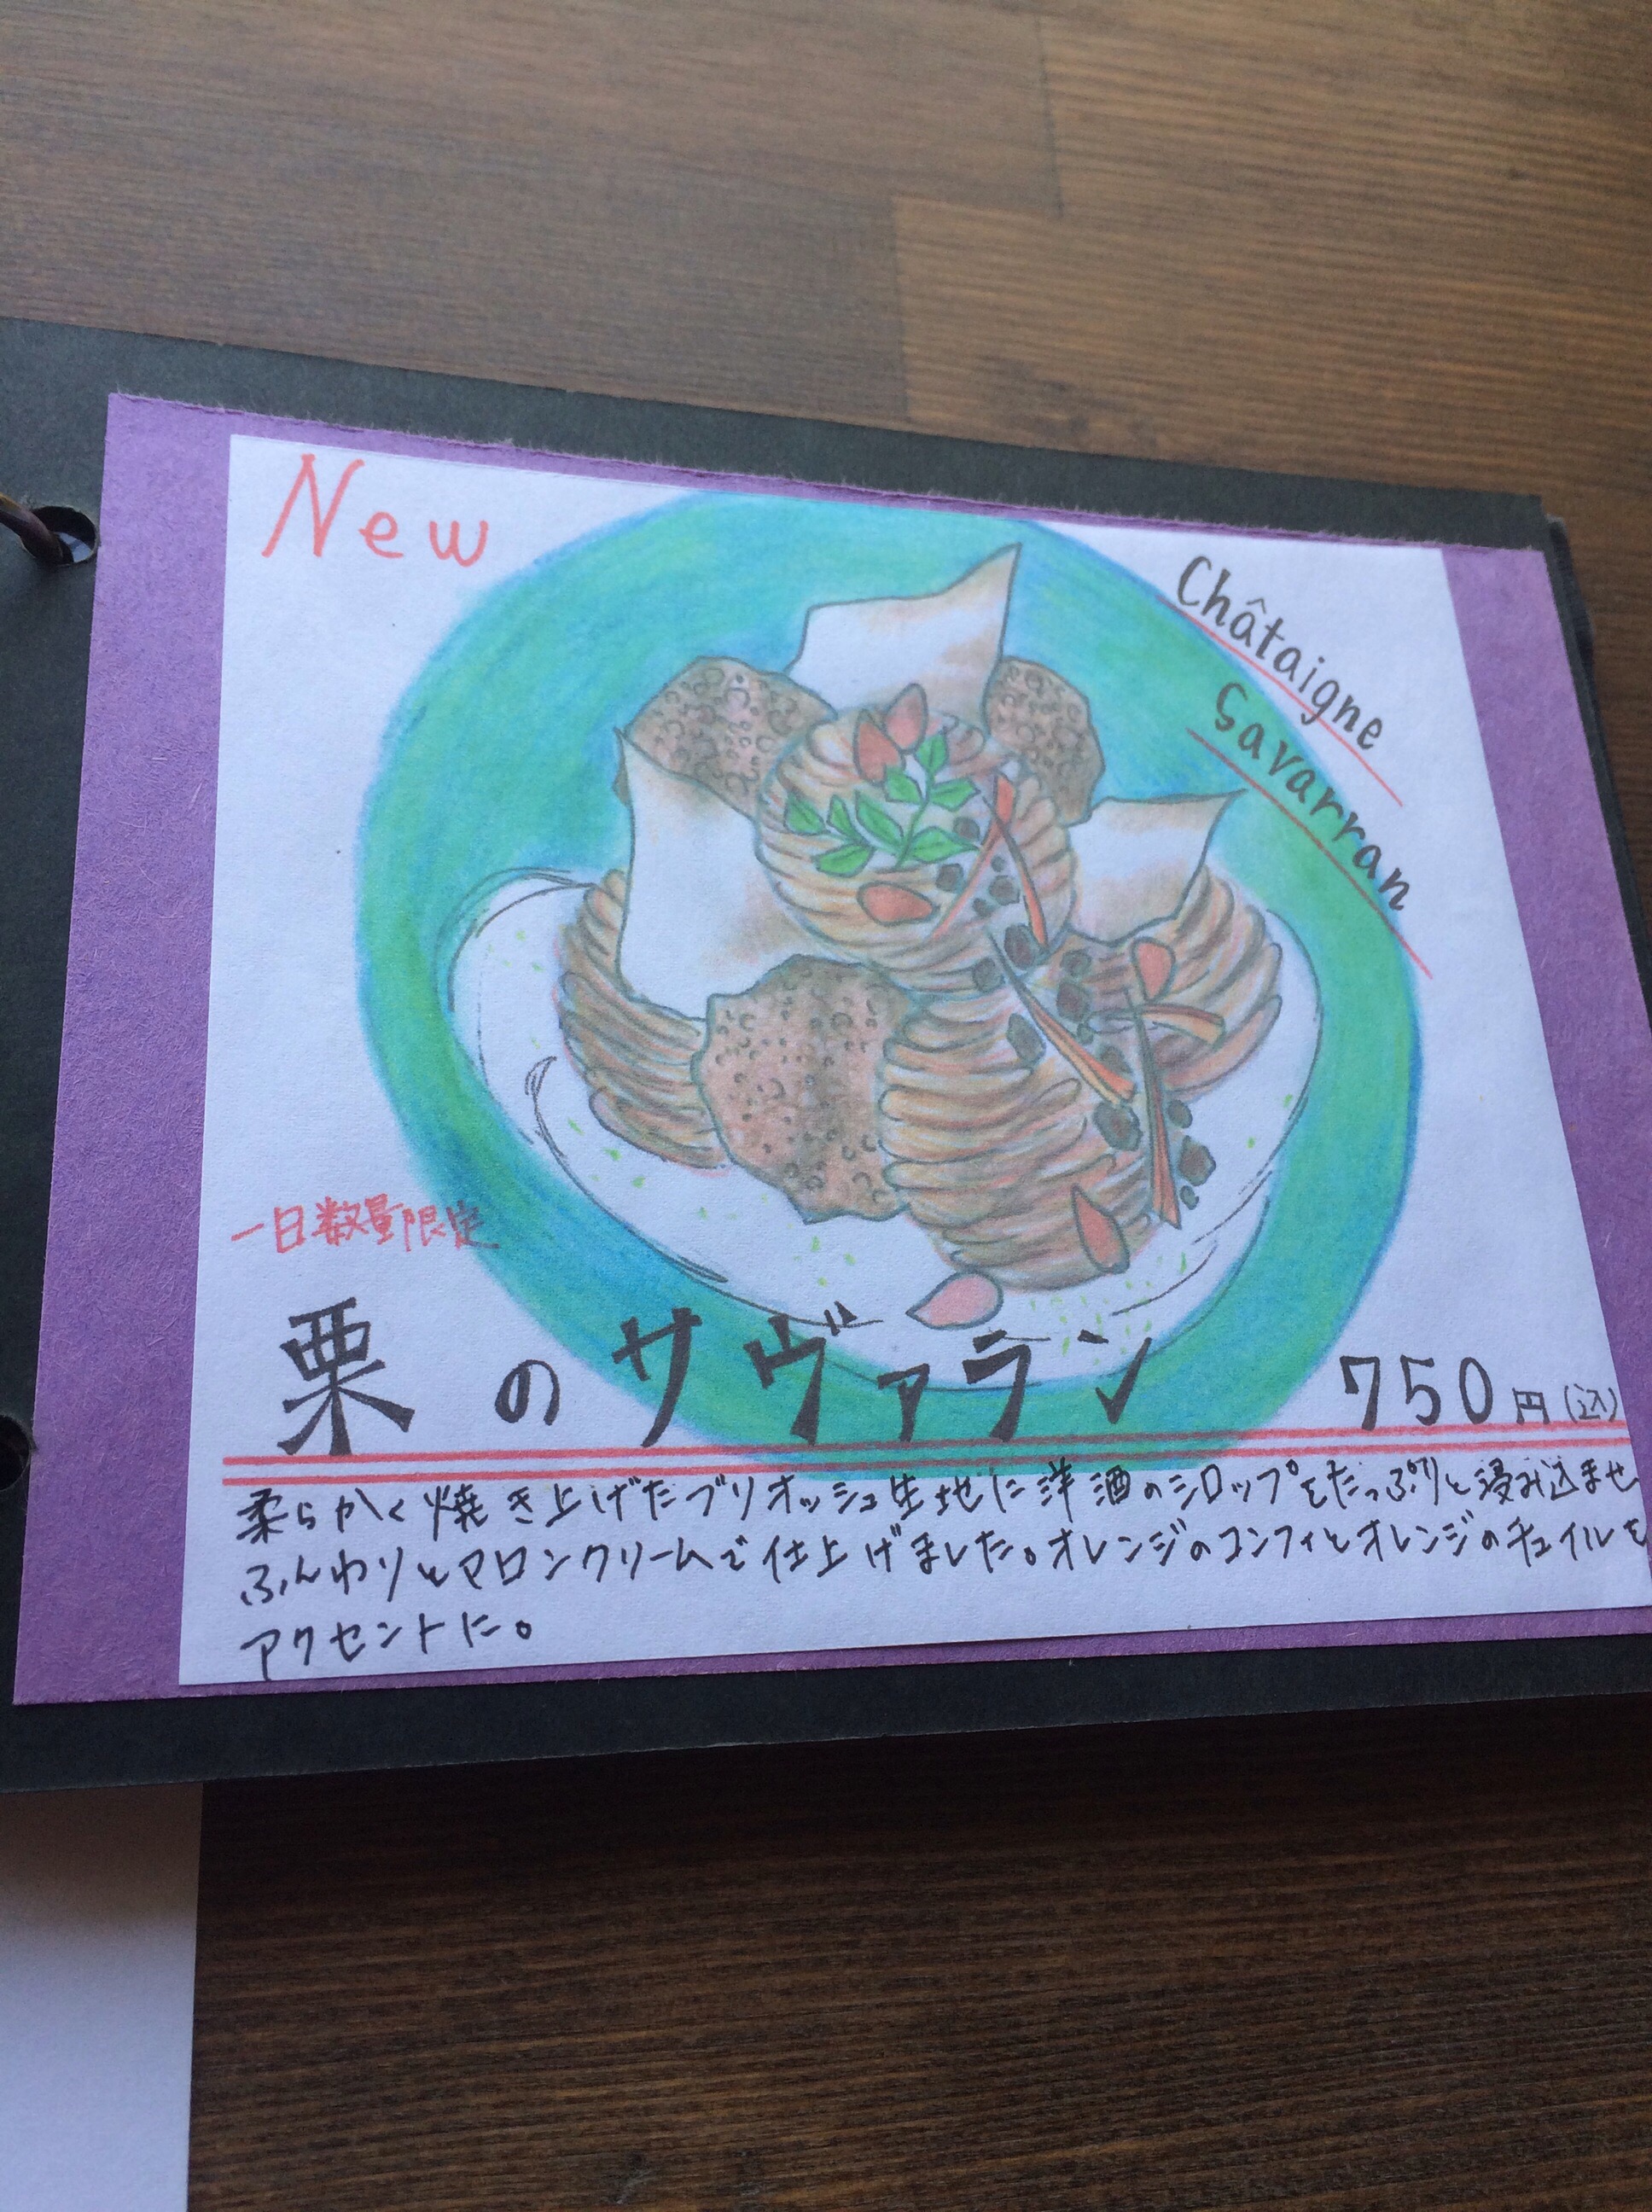 New
Châtaigne
Savarran
一日数量限定
栗のサヴァラン 750円(込)
柔らかく焼き上げたブリオッシュ生地に洋酒のシロップをたっぷりと浸み込ませ
ふんわりとマロンクリームで仕上げました。オレンジのコンフィとオレンジのチュイルを
アクセントに。